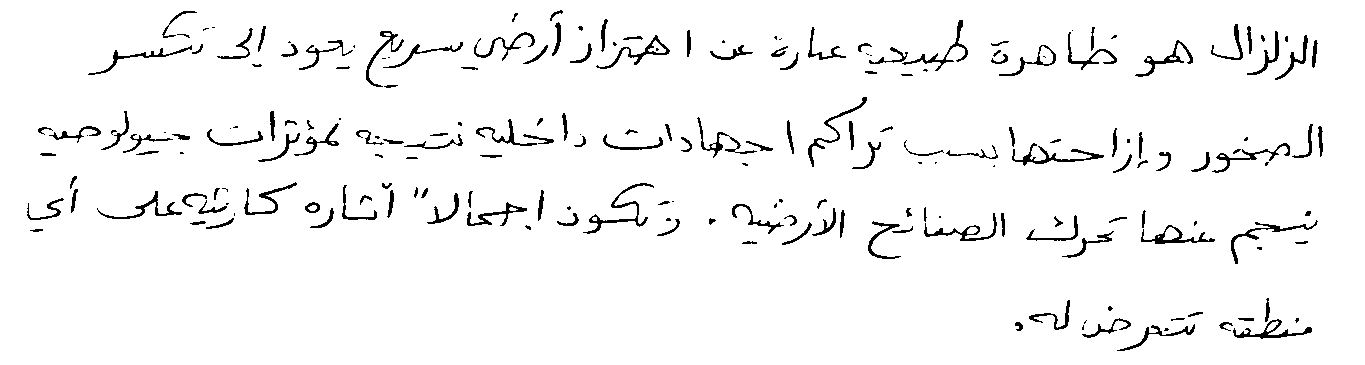 الزلزال هو ظاهرة طبيعيه عبارة عن اهتزاز أرضي سريع يعود إلى تكسر
الصخور وإزاحتها بسبب تراكم اجهادات داخليه نتيجه لمؤثرات جيولوجيه
ينجم عنها تحرك الصفائح الأرضيه . وتكون اجمالا" آثاره كارثيه على أي
منطقه تتعرض له.